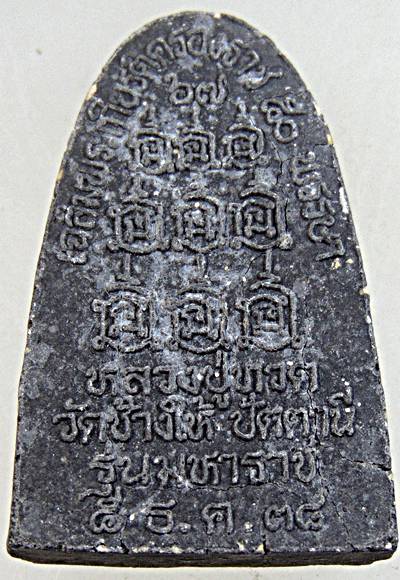 เฉลิมพระเกียรติครองราช ๕๐ พรรษา
๖๗
หลวงปู่ทวด
วัดช้างให้ ปัตตานี
รุ่นมหาราช
๕ ธ.ค. ๓๘